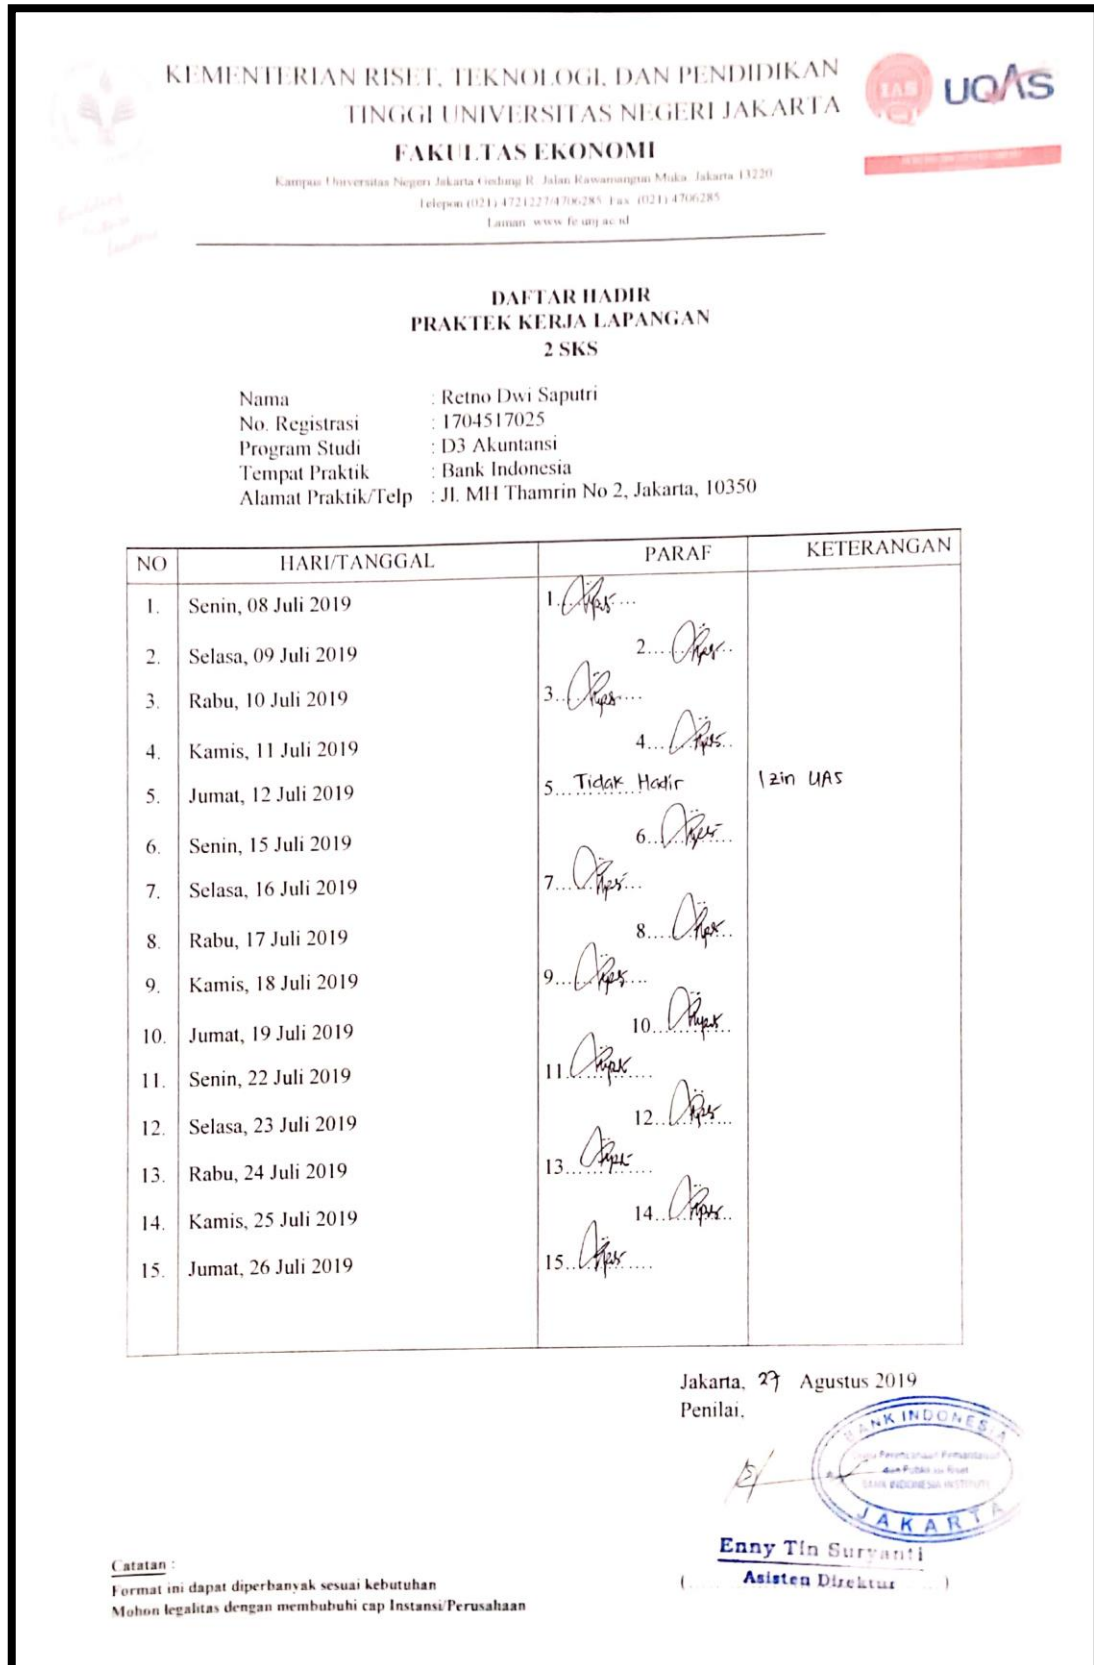 KEMENTERIAN RISET, TEKNOLOGI, DAN PENDIDIKAN
TINGGI UNIVERSITAS NEGERI JAKARTA
FAKULTAS EKONOMI
Kampus Universitas Negeri Jakarta Gedung R. Jalan Rawamangun Muka, Jakarta 13220
Telepon (021) 4721227/4706285, Fax. (021) 4706285
Laman: www.fe.unj.ac.id
IAS
UQAS
DAFTAR HADIR
PRAKTEK KERJA LAPANGAN
2 SKS
Nama : Retno Dwi Saputri
No. Registrasi : 1704517025
Program Studi : D3 Akuntansi
Tempat Praktik : Bank Indonesia
Alamat Praktik/Telp : Jl. MH Thamrin No 2, Jakarta, 10350
NO HARI/TANGGAL PARAF KETERANGAN
1. Senin, 08 Juli 2019 1.
2. Selasa, 09 Juli 2019 2.
3. Rabu, 10 Juli 2019 3.
4. Kamis, 11 Juli 2019 4.
5. Jumat, 12 Juli 2019 5. Tidak Hadir Izin UAS
6. Senin, 15 Juli 2019 6.
7. Selasa, 16 Juli 2019 7.
8. Rabu, 17 Juli 2019 8.
9. Kamis, 18 Juli 2019 9.
10. Jumat, 19 Juli 2019 10.
11. Senin, 22 Juli 2019 11.
12. Selasa, 23 Juli 2019 12.
13. Rabu, 24 Juli 2019 13.
14. Kamis, 25 Juli 2019 14.
15. Jumat, 26 Juli 2019 15.
Jakarta, 27 Agustus 2019
Penilai,
BANK INDONESIA
BANK INDONESIA INSTITUTE
JAKARTA
Enny Tin Suryanti
(Asisten Direktur)
Catatan :
Format ini dapat diperbanyak sesuai kebutuhan
Mohon legalitas dengan membubuhi cap Instansi/Perusahaan